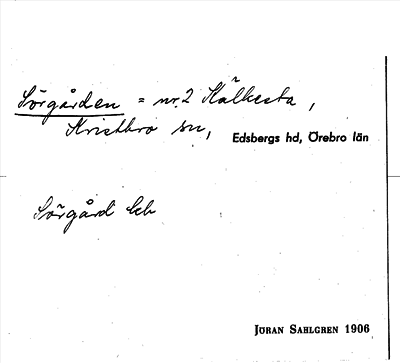 Sörgården = nr. 2 Kälkesta,
Kvistbro sn, Edsbergs hd, Örebro län
Sörgård
JÖRAN SAHLGREN 1906